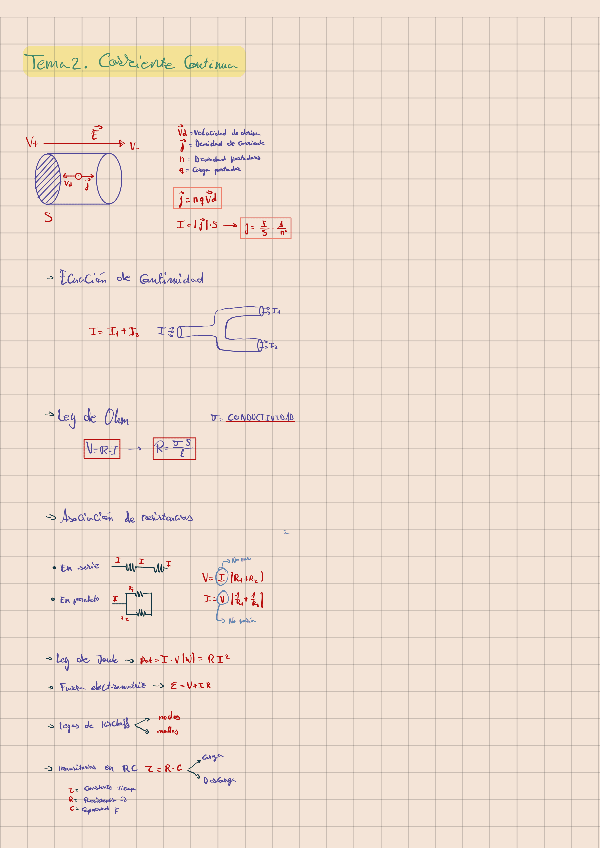 Tema 2. Corriente Continua
V+ E V-
Vd = Velocidad de deriva
j = Densidad de corriente
n = Densidad portadores
q = Carga portador
Vd j
S
j = nqVd
I = |j|·S → j =
→ Ecuación de Continuidad
I = I₁ + I₂ I I₁
I₂
→ Ley de Ohm σ: CONDUCTIVIDAD
V=R·I → R = σ S / l
→ Asociación de resistencias
• En serie I I I V= I (R₁+R₂)
• En paralelo I R₁ R₂ I = V (1/R₁ + 1/R₂)
→ No varía
→ Ley de Joule → = I·V |W| = R I²
→ Fuerza electromotriz → Ɛ = V+IR
→ Leyes de Kirchoff nodos
mallas
→ transitorios en RC τ = R·C Carga
Descarga
τ = Constante tiempo
R = Resistencia Ω
C = Capacidad F